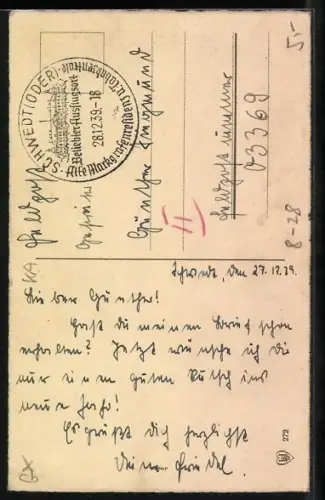 SCHWEDT (ODER)
Beliebter Ausflugsort
28.12.39.-18
5.-
Feldpost
Gefreiter
Günther
II
Feldpostnummer
03369
8-28
KA
Schwedt, den 27.12.39.
Lieber Günther!
Hast Du meinen Brief schon
erhalten? Jetzt wünsche ich Dir
nur einen guten Rutsch ins
neue Jahr!
Es grüßt Dich herzlichst
Deine Friedel.
272